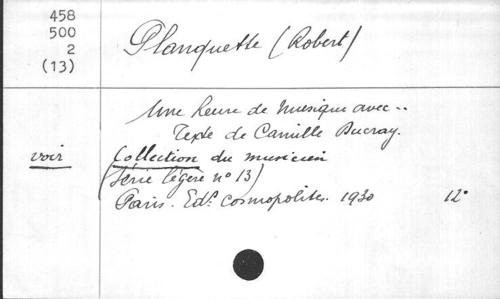 458
500
2
(13)
Planquette (Robert)
Une heure de musique avec..
Texte de Camille Ducray.
voir
Collection du musicien
(Série légère n° 13)
Paris. Ed.s cosmopolites. 1930 12°